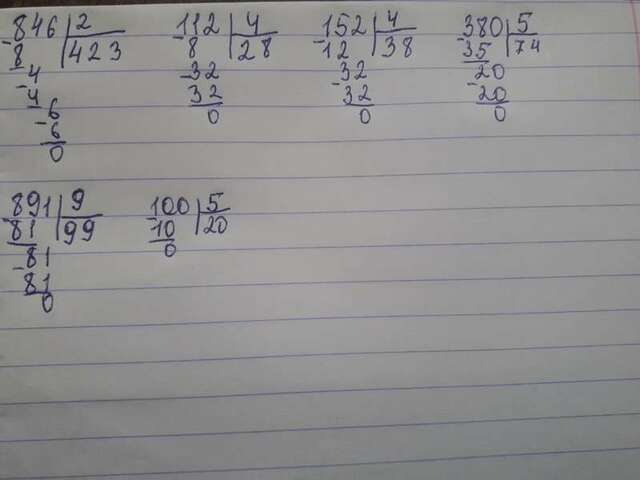 846 | 2    112 | 4    152 | 4    380 | 5
-8 | 423    -8 | 28    -12 | 38    -35 | 74
-4    -32    -32    -20
4    32    32    20
-6    0    0    0
6
0
891 | 9    100 | 5
-81 | 99    -10 | 20
-81    0
81
0